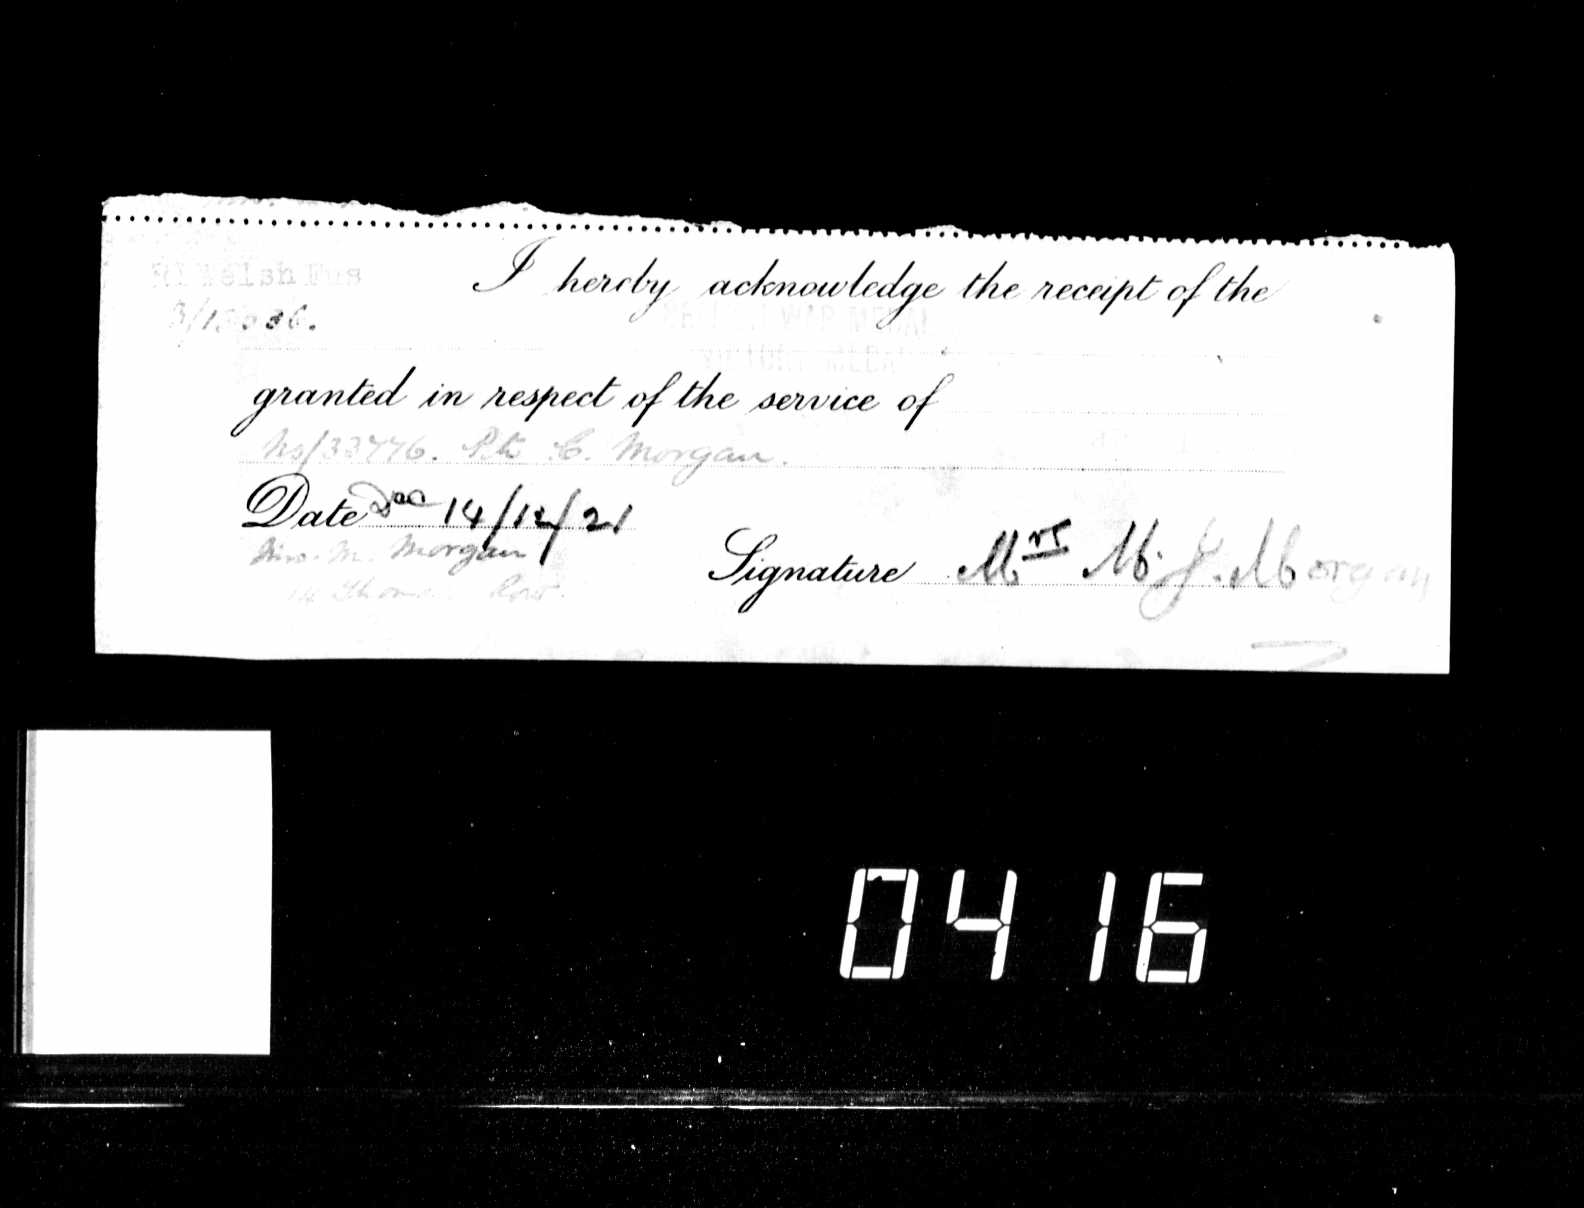 Rl Welsh Fus
I hereby acknowledge the receipt of the
BRITISH WAR MEDAL
VICTORY MEDAL
granted in respect of the service of
Pte C. Morgan.
Date Dec 14/12/21
Mrs. M. Morgan
Signature Mrs M. J. Morgan
14 Row.
0416